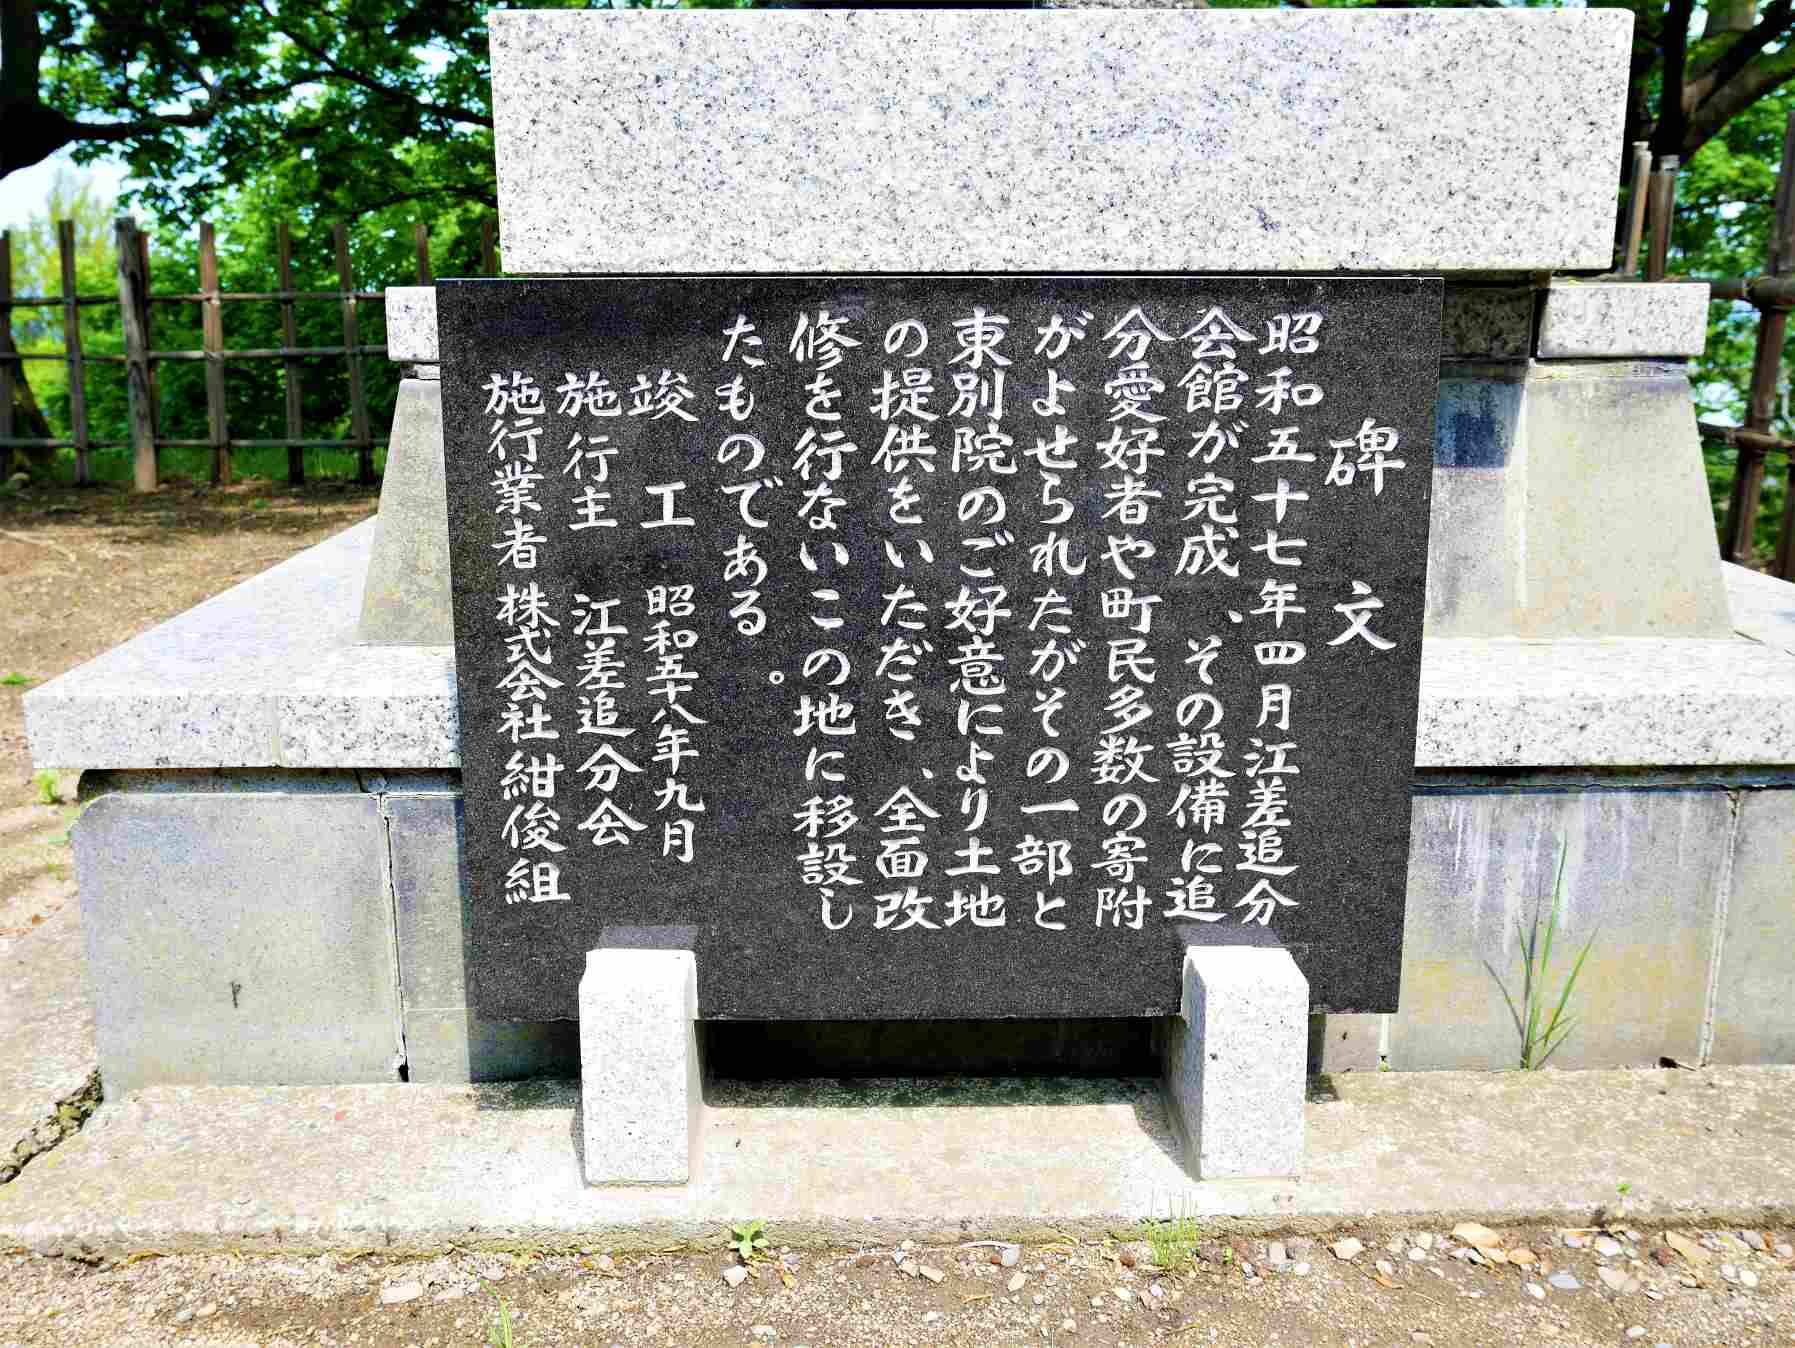 碑文
昭和五十七年四月江差追分
会館が完成、その設備に追
分愛好者や町民多数の寄附
がよせられたがその一部と
東別院のご好意により土地
の提供をいただき、全面改
修を行ないこの地に移設し
たものである。
竣工 昭和五十八年九月
施行主 江差追分会
施行業者 株式会社紺俊組